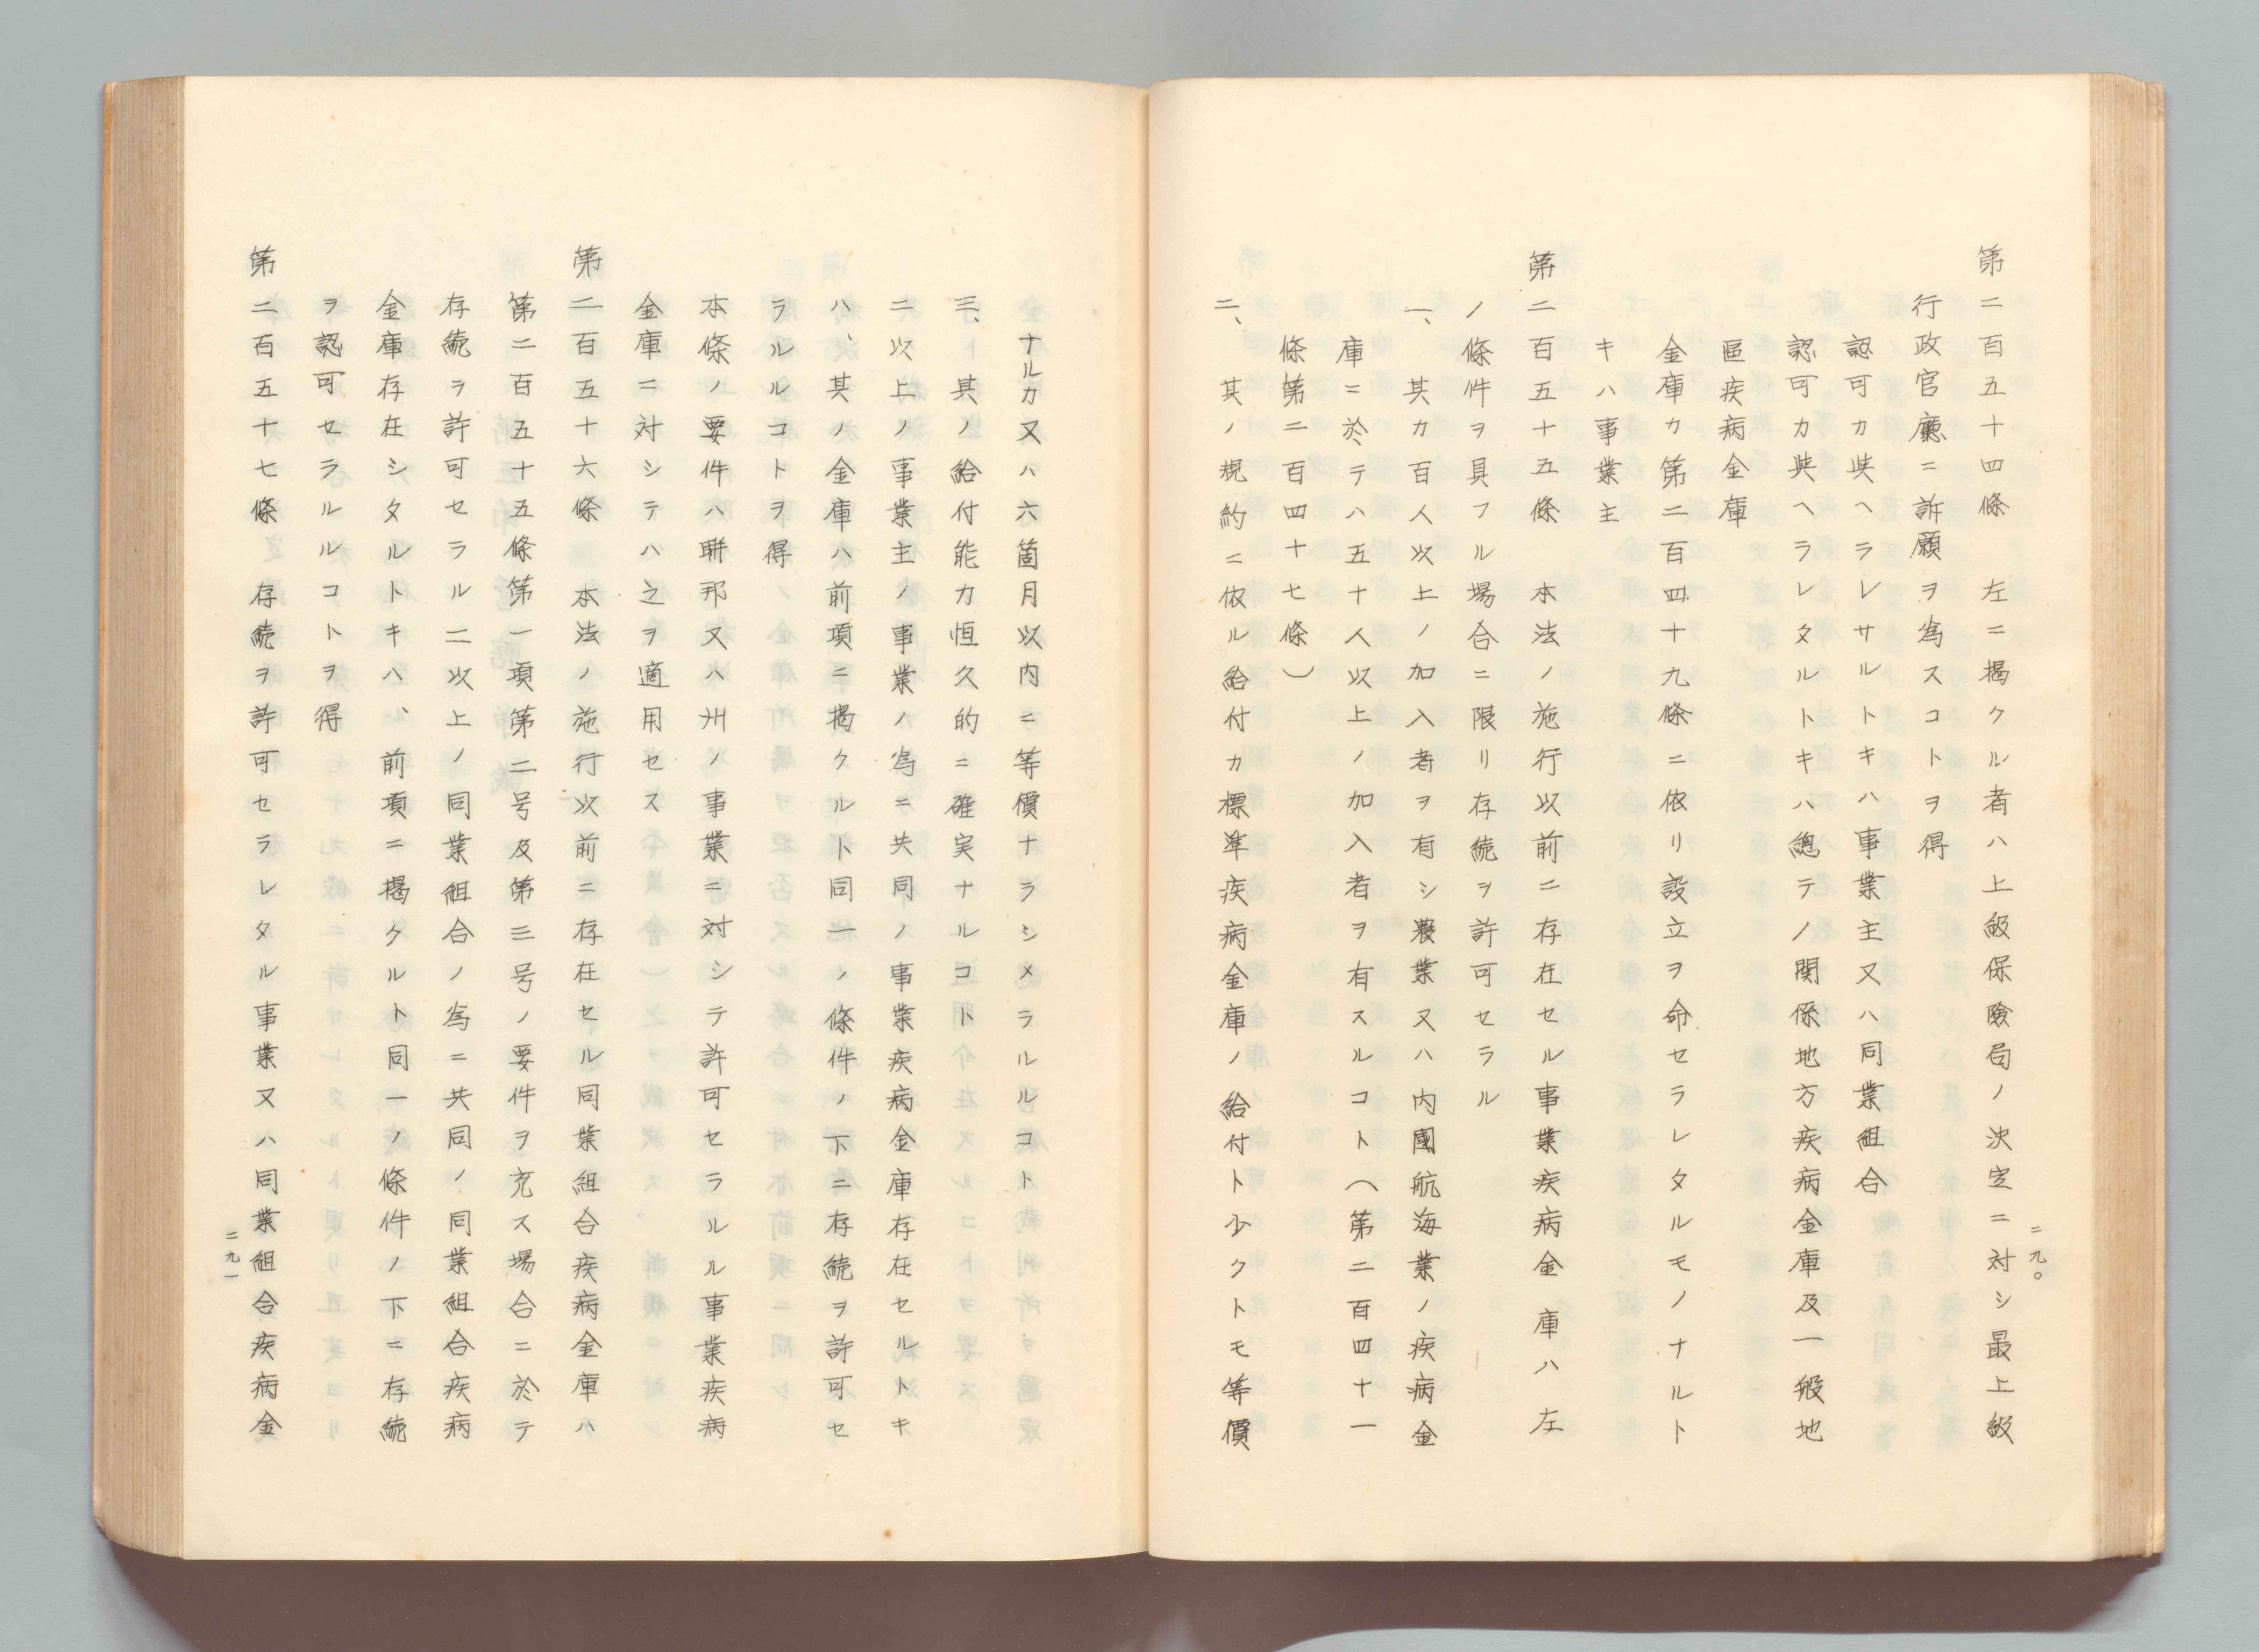 第二百五十四條　左ニ揭クル者ハ上級保險局ノ決定ニ対シ最上級
行政官廳ニ訴願ヲ為スコトヲ得
認可カ與ヘラレサルトキハ事業主又ハ同業組合
認可カ與ヘラレタルトキハ總テノ関係地方疾病金庫及一般地
區疾病金庫
金庫カ第二百四十九條ニ依リ設立ヲ命セラレタルモノナルト
キハ事業主
第二百五十五條　本法ノ施行以前ニ存在セル事業疾病金庫ハ左
ノ條件ヲ具フル場合ニ限リ存続ヲ許可セラル
一、其カ百人以上ノ加入者ヲ有シ農業又ハ内國航海業ノ疾病金
庫ニ於テハ五十人以上ノ加入者ヲ有スルコト（第二百四十一
條第二百四十七條）
二、其ノ規約ニ依ル給付カ標準疾病金庫ノ給付ト少クトモ等價
二九〇
ナルカ又ハ六箇月以内ニ等價ナラシメラルルコト
三、其ノ給付能力恒久的ニ確実ナルコト
二以上ノ事業主ノ事業ノ為ニ共同ノ事業疾病金庫存在セルトキ
ハ、其ノ金庫ハ前項ニ揭クルト同一ノ條件ノ下ニ存続ヲ許可セ
ラルルコトヲ得
本條ノ要件ハ聯邦又ハ州ノ事業ニ対シテ許可セラルル事業疾病
金庫ニ対シテハ之ヲ適用セス
第二百五十六條　本法ノ施行以前ニ存在セル同業組合疾病金庫ハ
第二百五十五條第一項第二号及第三号ノ要件ヲ充ス場合ニ於テ
存続ヲ許可セラル二以上ノ同業組合ノ為ニ共同ノ同業組合疾病
金庫存在シタルトキハ、前項ニ揭クルト同一ノ條件ノ下ニ存続
ヲ認可セラルルコトヲ得
第二百五十七條　存続ヲ許可セラレタル事業又ハ同業組合疾病金
二九一